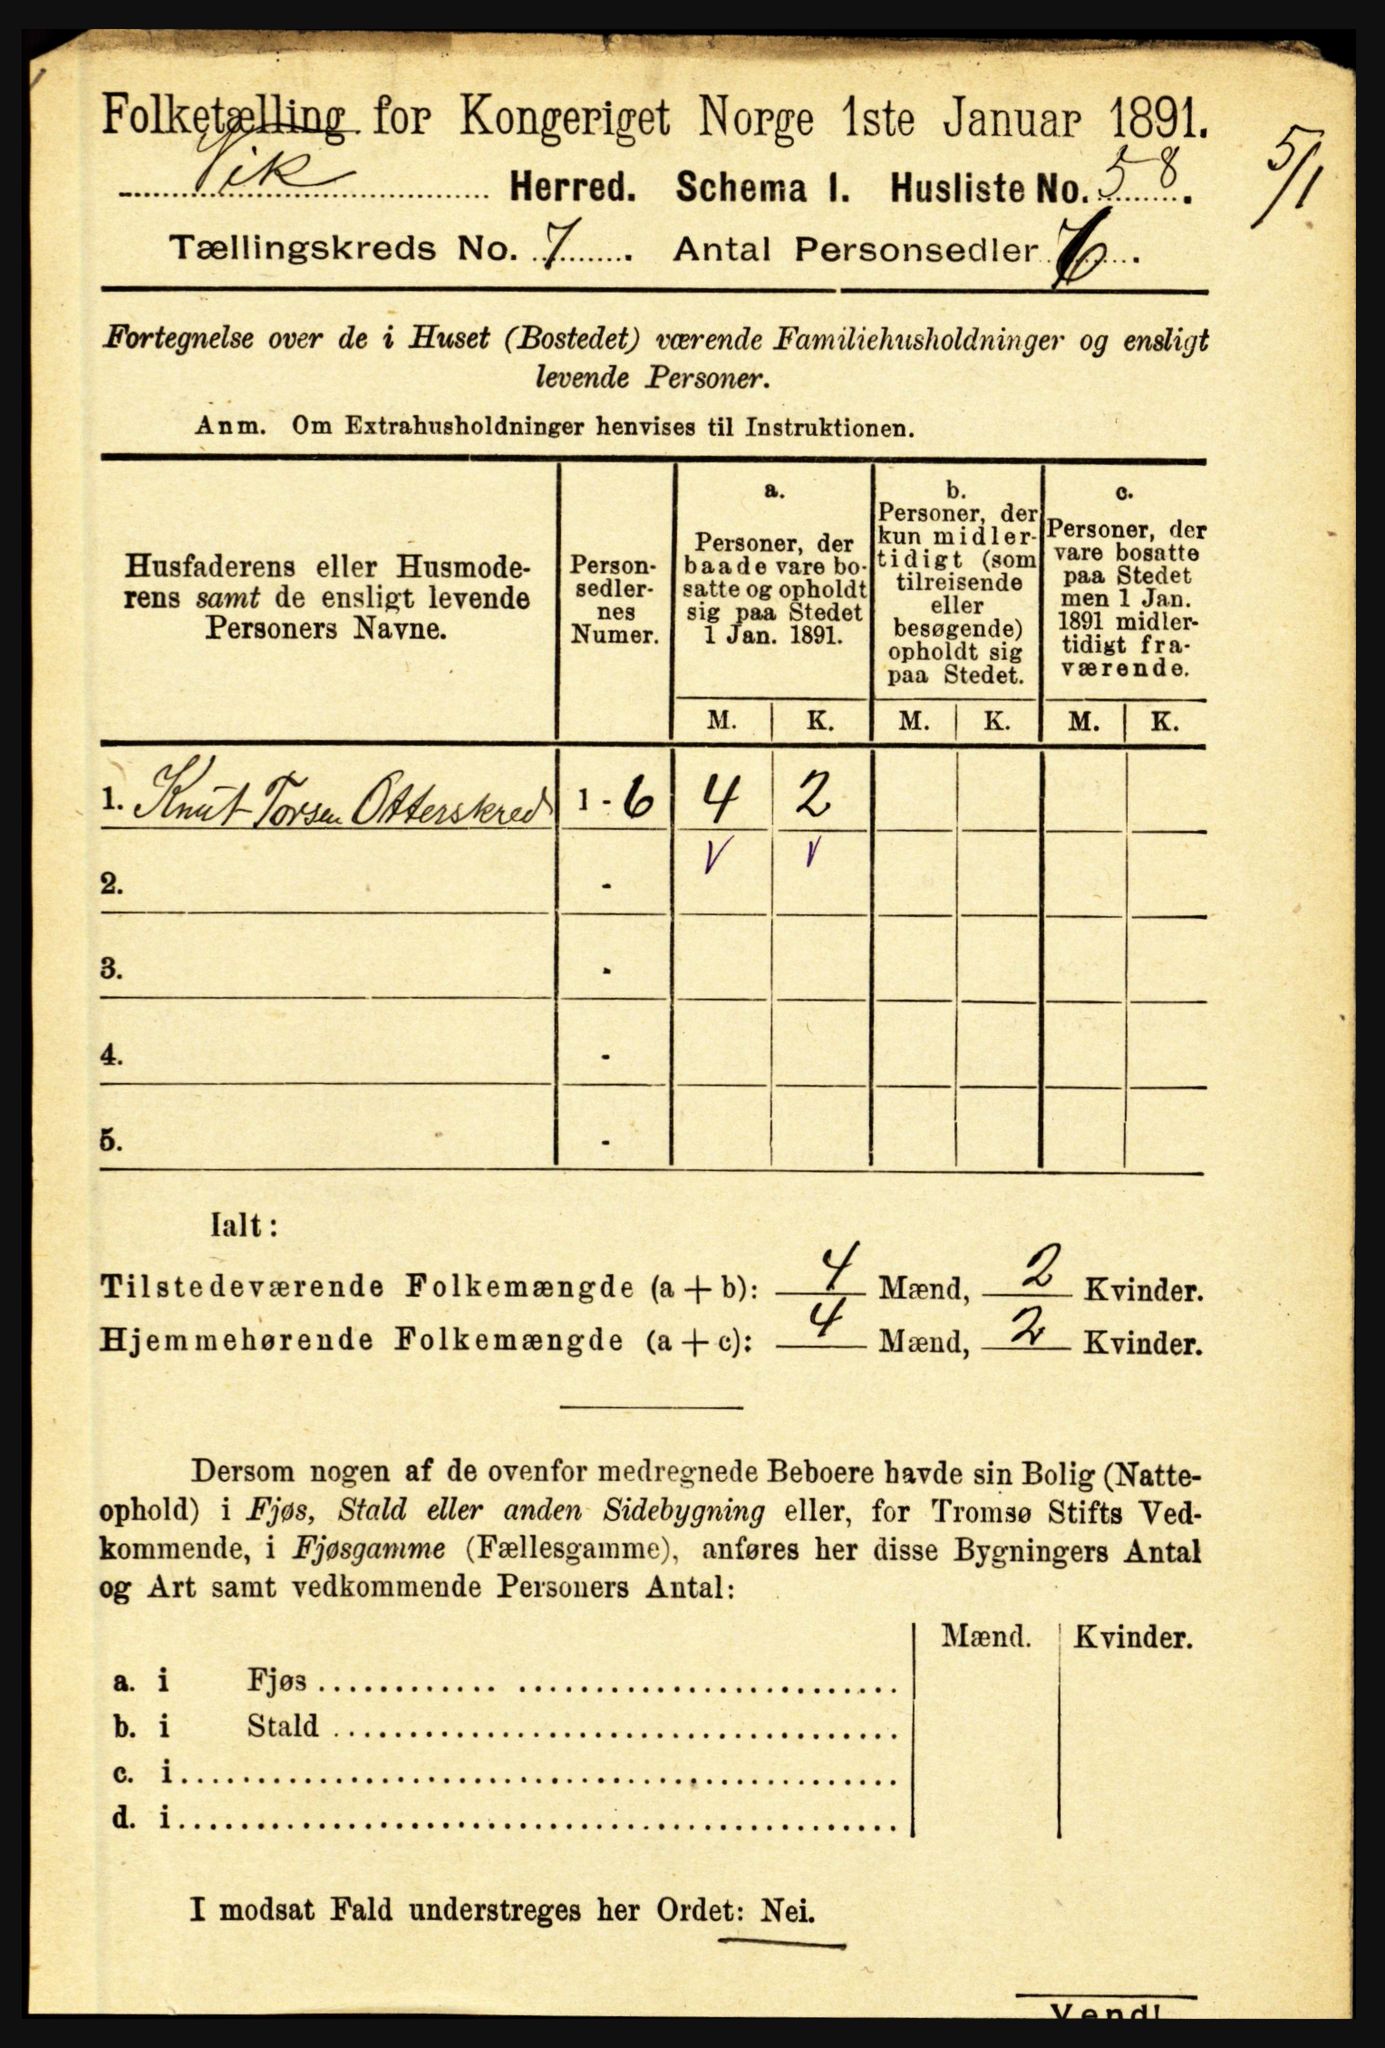 Folketælling for Kongeriget Norge 1ste Januar 1891.
5/1
Vik Herred. Schema I. Husliste No. 58.
Tællingskreds No. 7. Antal Personsedler 6.
Fortegnelse over de i Huset (Bostedet) værende Familiehusholdninger og ensligt
levende Personer.
Anm. Om Extrahusholdninger henvises til Instruktionen.
Husfaderens eller Husmode-
rens samt de ensligt levende
Personers Navne.
Person-
sedler-
nes
Numer.
a.
Personer, der
baade vare bo-
satte og opholdt
sig paa Stedet
1 Jan. 1891.
b.
Personer, der
kun midler-
tidigt (som
tilreisende
eller
besøgende)
opholdt sig
paa Stedet.
c.
Personer, der
vare bosatte
paa Stedet
men 1 Jan.
1891 midler-
tidigt fra-
værende.
M. K. M. K. M. K.
1. Knut Torsen Otterskred 1 - 6 4 2
2. -
3. -
4. -
5. -
Ialt:
Tilstedeværende Folkemængde (a + b): 4 Mænd, 2 Kvinder.
Hjemmehørende Folkemængde (a + c): 4 Mænd, 2 Kvinder.
Dersom nogen af de ovenfor medregnede Beboere havde sin Bolig (Natte-
ophold) i Fjøs, Stald eller anden Sidebygning eller, for Tromsø Stifts Ved-
kommende, i Fjøsgamme (Fællesgamme), anføres her disse Bygningers Antal
og Art samt vedkommende Personers Antal:
Mænd. Kvinder.
a. i Fjøs
b. i Stald
c. i
d. i
I modsat Fald understreges her Ordet: Nei.
Vend!